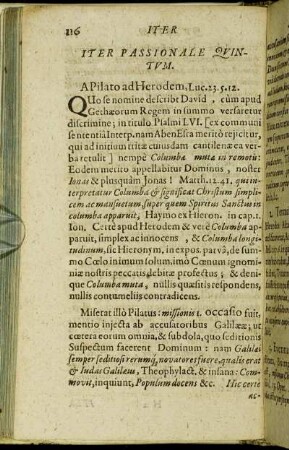 116 ITER
ITER PASSIONALE QVIN-
TVM.
A Pilato ad Herodem. Luc. 23. 5. 12.
QUo se nomine describit David, cùm apud
Gethæorum Regem in summo versaretur
discrimine; in titulo Psalmi LVI. [ex communi
sententiâ Interp. nam Aben Esra meritò rejicitur,
qui ad initium tritæ cuiusdam cantilenæ ea ver-
ba retulit] nempè Columbæ mutæ in remotis:
Eodem meritò appellabitur Dominus, noster
Ionas & plusquàm Jonas! Matth. 12. 41. quẽ in-
terpretatur Columba & significat Christum simpli-
cem ac mãsuetum, super quem Spiritus Sanctus in
columba apparuit, Haymo ex Hieron. in cap. 1.
Ion. Certè apud Herodem & verè Columba ap-
paruit, simplex ac innocens, & Columba longi-
tudinum, sic Hieronym, in expos. parvâ, de sum-
mo Cœlo in imum solum, imò Cœnum ignomi-
niæ nostris peccatis debitæ profectus; & deni-
que Columba muta, nullis quæsitis respondens,
nullis contumeliis contradicens.
Miserat illò Pilatus: missionis t. occasio fuit,
mentio injecta ab accusatoribus Galilææ; ut
cœtera eorum omnia, & subdola, quo seditionis
Suspectum facerent Dominum: nam Galilæi
semper seditiosi rerumq́; novatores fuere, qualis erat
& Iudas Galilæus, Theophylact. & insana: Com-
movit, inquiunt, Populum docens &c. Hic certè
ac-